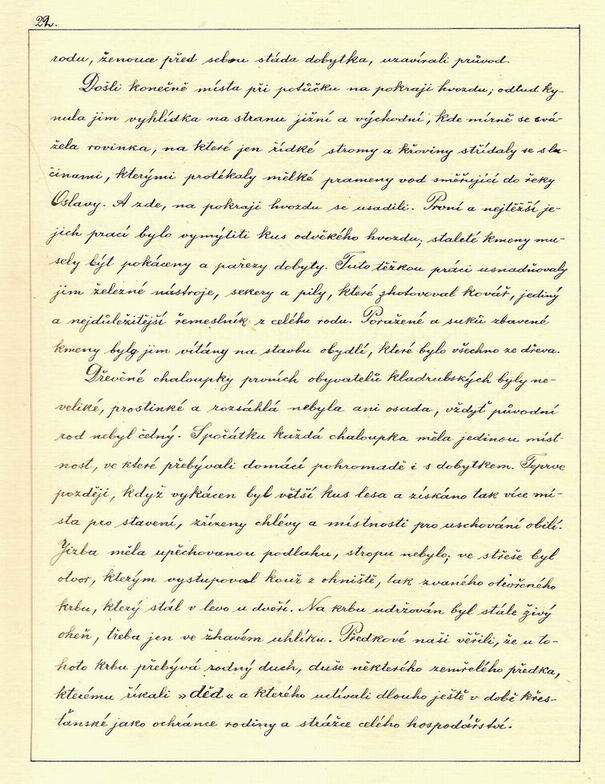 22.
rodu, ženouce před sebou stáda dobytka, uzavírali průvod.
Došli konečně místa při potůčku na pokraji hvozdu; odtud ky-
nula jim vyhlídka na stranu jižní a východní, kde mírně se svá-
žela rovinka, na které jen řídké stromy a křoviny střídaly se sla-
činami, kterými protékaly mělké prameny vod směřující do řeky
Oslavy. A zde, na pokraji hvozdu se usadili. První a nejtěžší je-
jich prací bylo vymýtiti kus odvěkého hvozdu; staleté kmeny mu-
sely být pokáceny a pařezy dobyty. Tuto těžkou práci usnadňovaly
jim železné nástroje, sekery a pily, které zhotovoval kovář, jediný
a nejdůležitější řemeslník z celého rodu. Poražené a suků zbavené
kmeny byly jim vítány na stavbu obydlí, které bylo všechno ze dřeva.
Dřevěné chaloupky prvních obyvatelů kladrubských byly ne-
veliké, prostinké a rozsáhlá nebyla ani osada, vždyť původní
rod nebyl četný. Spočátku každá chaloupka měla jedinou míst-
nost, ve které přebývali domácí pohromadě i s dobytkem. Teprve
později, když vykácen byl větší kus lesa a získáno tak více mí-
sta pro stavení, zřízeny chlévy a místnosti pro uschování obilí.
Jizba měla upěchovanou podlahu, stropu nebylo; ve střeše byl
otvor, kterým vystupoval kouř z ohniště, tak zvaného otevřeného
krbu, který stál v levo u dveří. Na krbu udržován byl stále živý
oheň, třeba jen ve žhavém uhlíku. Předkové naši věřili, že u to-
hoto krbu přebývá rodný duch, duše některého zemřelého předka,
kterému říkali »děd« a kterého uctívali dlouho ještě v době křes-
ťanské jako ochránce rodiny a strážce celého hospodářství.